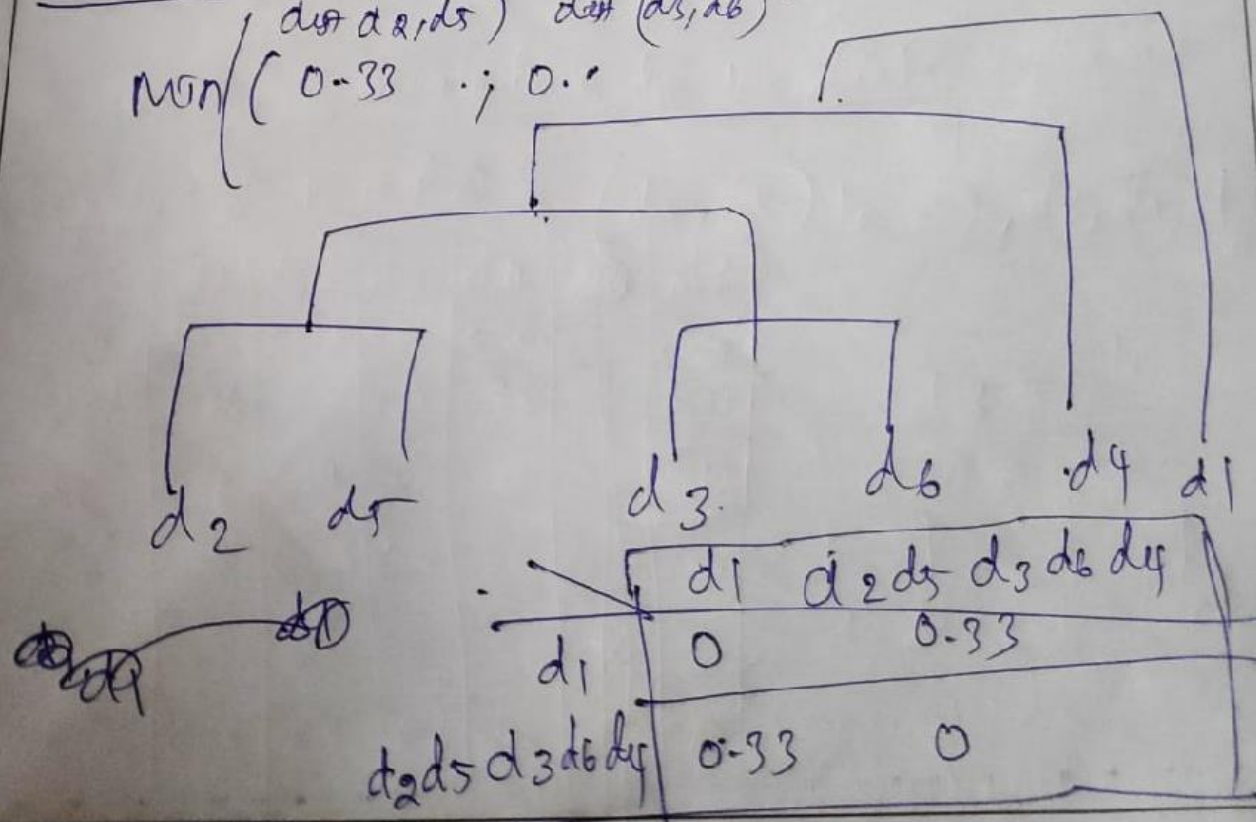 dist d2, d5) dist (d3, d6)
Min ( 0.33 ; 0.
d2 d5 d3 d6 d4 d1
d1 d2d5 d3 d6 d4
d1 0 0.33
d2d5 d3d6d4 0.33 0